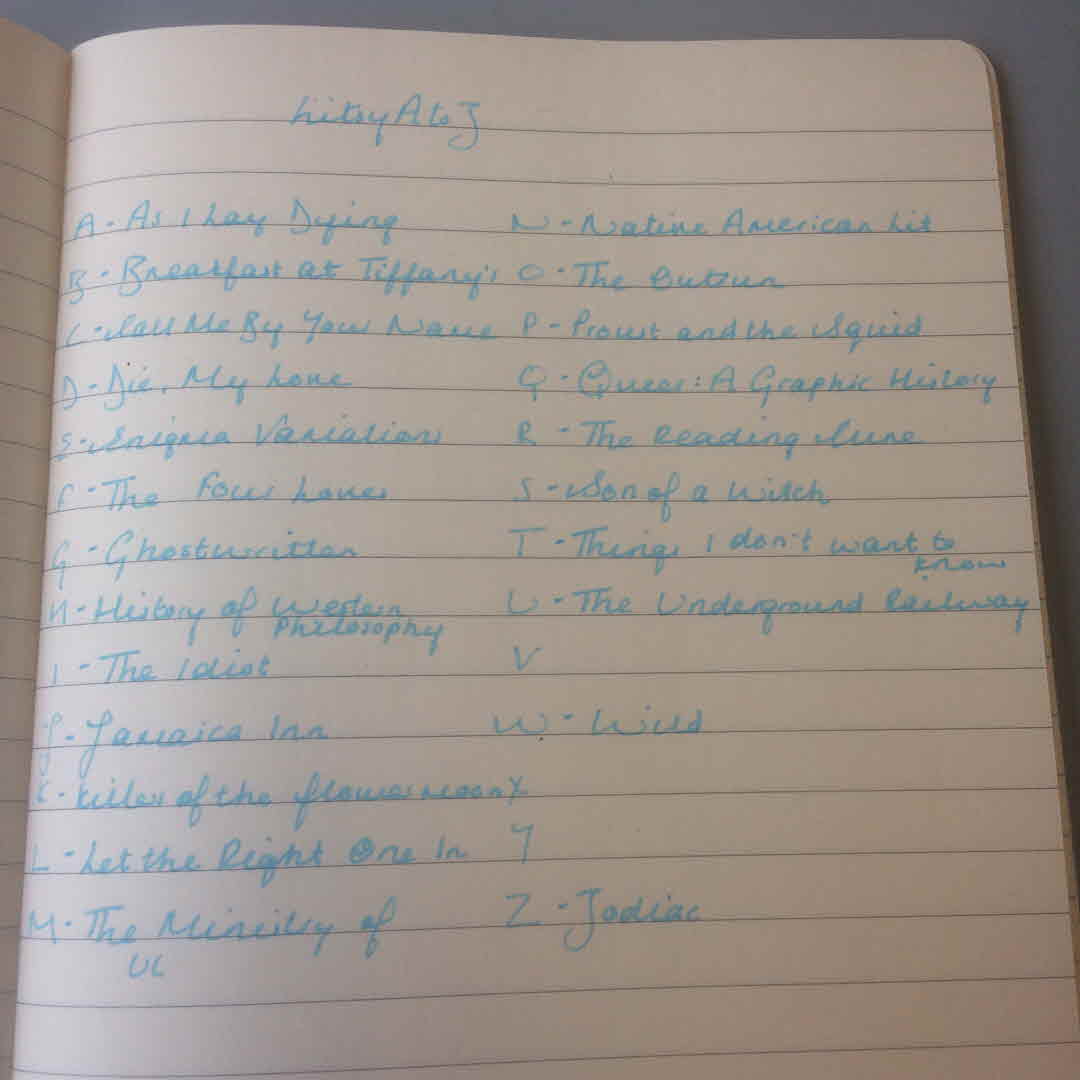 Litsy A to Z
A - As I Lay Dying
B - Breakfast at Tiffany's
C - Call Me By Your Name
D - Die, My Love
E - Enigma Variations
F - The Four Loves
G - Ghostwritten
H - History of Western
Philosophy
I - The Idiot
J - Jamaica Inn
K - Killer of the flower moon
L - Let the Right One In
M - The Ministry of
N - Native American Lit
O - The Outrun
P - Proust and the Squid
Q - Queer: A Graphic History
R - The Reading Cure
S - Son of a Witch
T - Things I don't want to
know
U - The Underground Railway
V
W - Wild
X
Y
Z - Zodiac